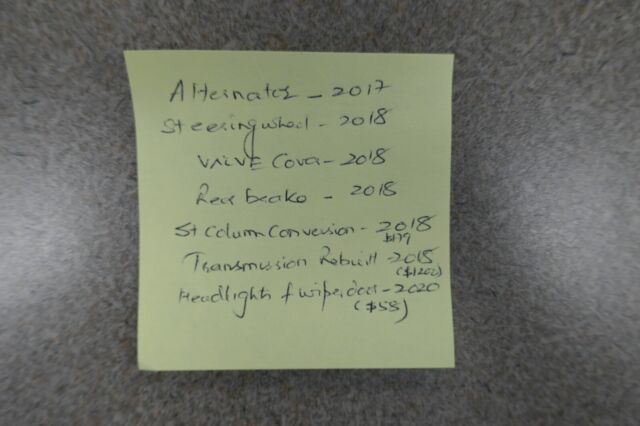 Alternator - 2017
Steering wheel - 2018
VALVE Cover - 2018
Rear brake - 2018
St Column Conversion - 2018
$179
Transmission Rebuilt - 2015
($1200)
Headlights & - 2020
($58)